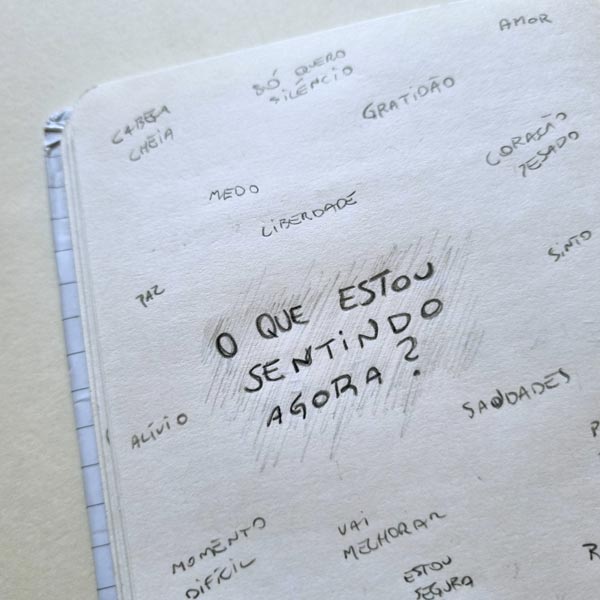 AMOR
SÓ QUERO
SILÊNCIO
GRATIDÃO
CABEÇA
CHEIA
CORAÇÃO
PESADO
MEDO
LIBERDADE
SINTO
PAZ
O QUE ESTOU
SENTINDO
AGORA?
SAUDADES
ALÍVIO
MOMENTO
DIFÍCIL
VAI
MELHORAR
ESTOU
SEGURA